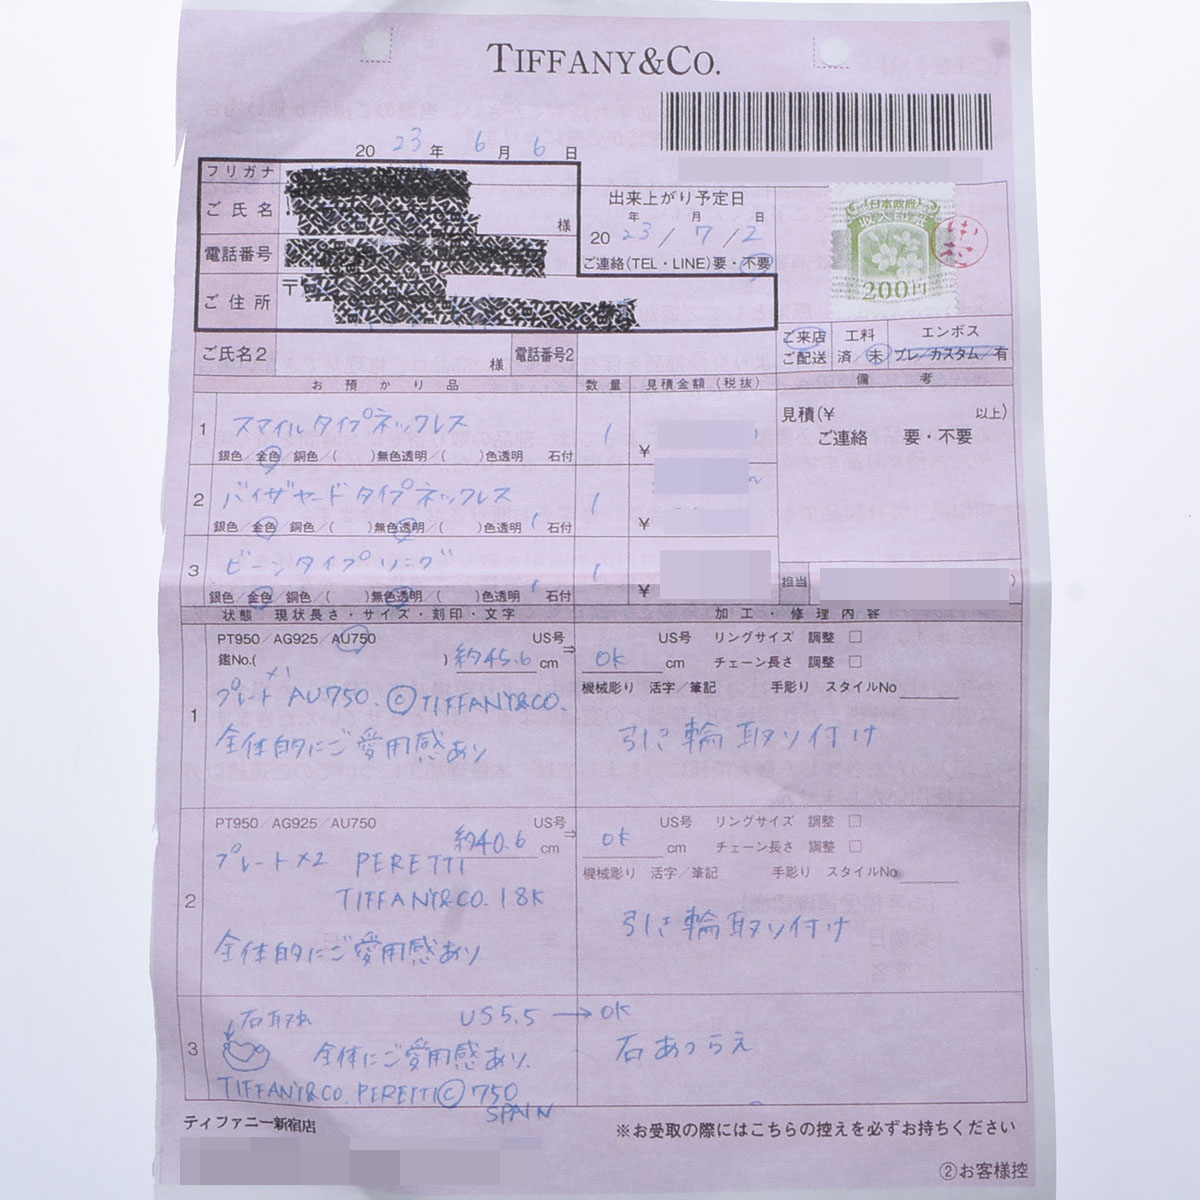 TIFFANY&CO.
2023年6月6日
フリガナ
ご氏名
様
電話番号
〒
ご住所
出来上がり予定日
年 月 日
2023/7/2
ご連絡(TEL・LINE)要・不要
日本政府
収入印紙
200円
ご来店
ご配送
工料
済/未
エンボス
プレ/カスタム/有
ご氏名2 様 電話番号2
お預かり品 数量 見積金額(税抜) 備考
1 スマイルタイプネックレス 1 ¥
銀色/金色/銅色/( )無色透明/( )色透明 石付
2 バイザヤードタイプネックレス 1 ¥
銀色/金色/銅色/( )無色透明/( )色透明 1 石付
3 ビーンタイプリング 1 ¥
銀色/金色/銅色/( )無色透明/( )色透明 1 石付
見積(¥ 以上)
ご連絡 要・不要
担当
状態 現状長さ・サイズ・刻印・文字 加工・修理内容
1
PT950/AG925/AU750 US号
鑑No.( ) 約45.6 cm ⇒
プレート×1 AU750. ©TIFFANY&CO.
全体的にご愛用感あり
US号 リングサイズ 調整 □
OK cm チェーン長さ 調整 □
機械彫り 活字/筆記 手彫り スタイルNo
引き輪取り付け
2
PT950/AG925/AU750 US号
約40.6 cm ⇒
プレート×2 PERETTI
TIFFANY&CO. 18K
全体的にご愛用感あり
US号 リングサイズ 調整 □
OK cm チェーン長さ 調整 □
機械彫り 活字/筆記 手彫り スタイルNo
引き輪取り付け
3
石取れ US5.5 → OK
全体にご愛用感あり.
TIFFANY&CO. PERETTI© 750
SPAIN
石あつらえ
ティファニー新宿店
※お受取の際にはこちらの控えを必ずお持ちください
②お客様控